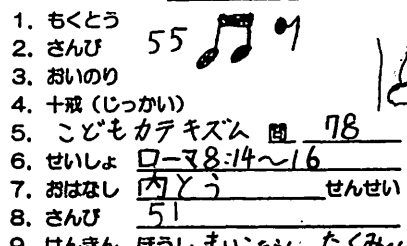 1. もくとう
2. さんび 55
3. おいのり
4. 十戒（じっかい）
5. こどもカテキズム 問 78
6. せいしょ ローマ8:14〜16
7. おはなし 内とう せんせい
8. さんび 51
9. けんきん ほうし